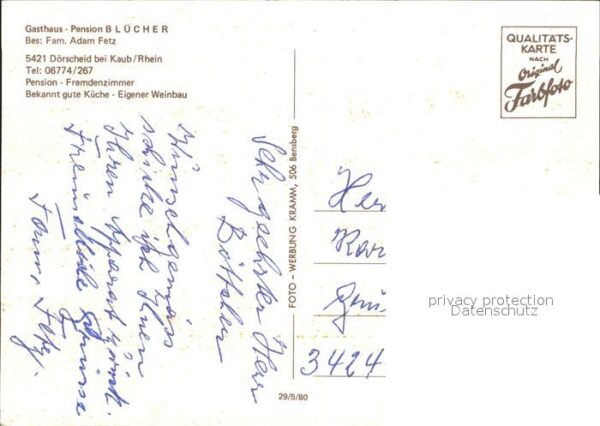 Gasthaus - Pension BLÜCHER
Bes: Fam. Adam Fetz
5421 Dörscheid bei Kaub/Rhein
Tel: 06774/267
Pension - Fremdenzimmer
Bekannt gute Küche - Eigener Weinbau
QUALITÄTS-
KARTE
NACH
Original
Farbfoto
Sehr geehrter Herr
Böttcher
Wunschgemäss
schicke ich Ihnen
Ihren Apparat zurück.
Freundliche Grüsse
Fam. Fetz.
FOTO - WERBUNG KRAMM, 506 Bensberg
Her
Kar
3424
privacy protection
Datenschutz
29/5/80